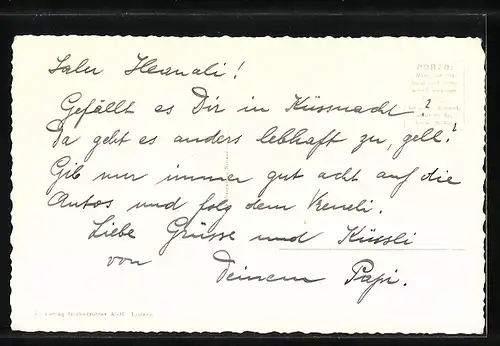 Salu Hannali!
Gefällt es Dir in Küssnacht?
Da geht es anders lebhaft zu, gell?
Gib nur immer gut acht auf die
Autos und folg dem Vreneli.
Liebe Grüsse und Küssli
von Deinem Papi.